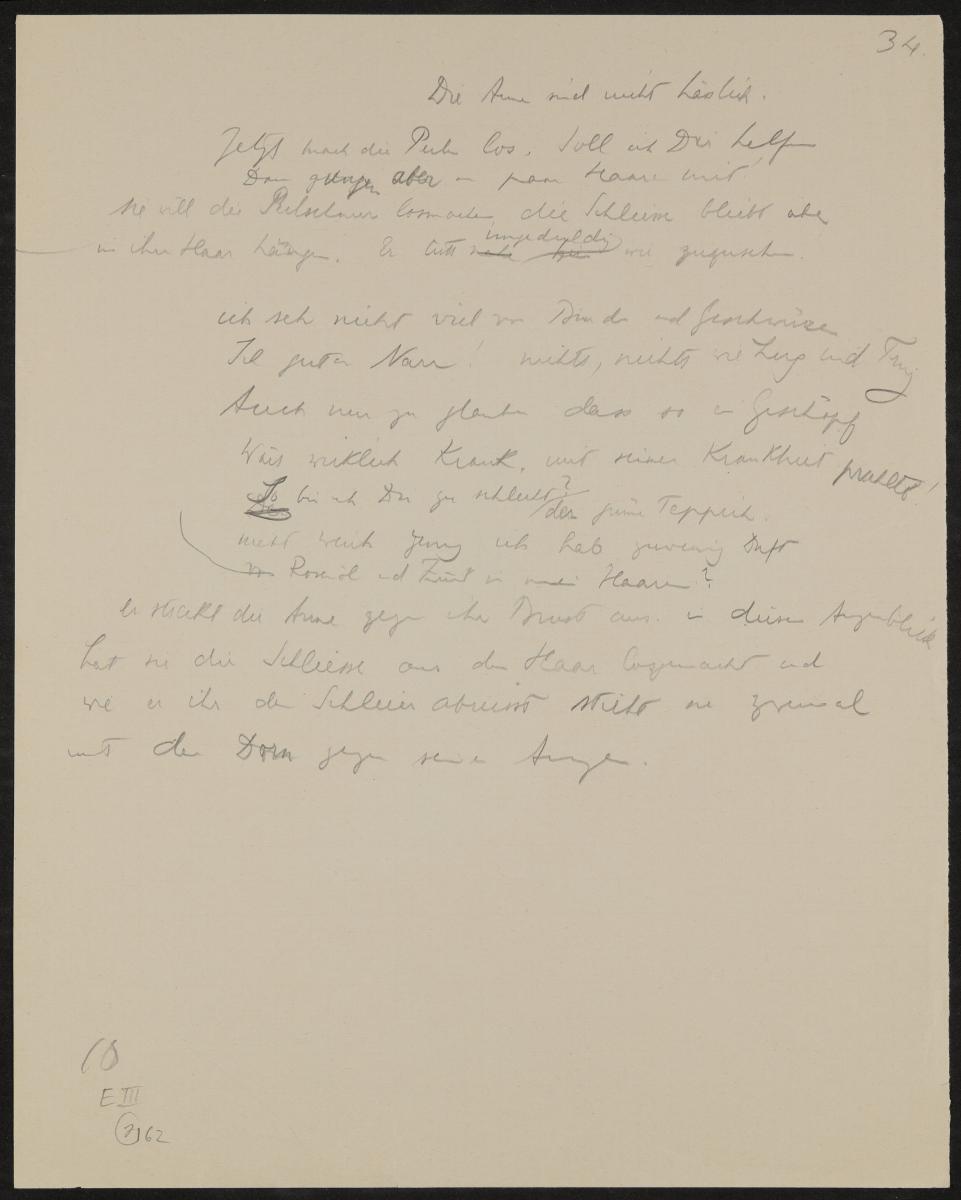 34.
Die Arme sind nicht hässlich.
Jetzt mach die Perlen los. Soll ich Dir helfen
Dann gingen aber ein paar Haare mit!
sie will die Perlschnur losmachen, die Schliesse bleibt aber
in ihren Haar hängen. Er tritt ungeduldig wie zuzusehen.
ich seh nicht viel von Binden und Geschwüren
Ich guter Narr! nichts, nichts wie Lug und Trug
Auch nur zu glauben dass so ein Geschöpf
Wärs wirklich Krank, mit seiner Krankheit prahlte!
So bin ich Dir zu schlecht? der grüne Teppich
nicht weich genug ich hab zuwenig Duft
von Rosenöl und Zimt in meinen Haaren?
er streckt die Arme gegen ihre Brust aus. in diesem Augenblick
hat sie die Schliesse aus dem Haar losgemacht und
wie er ihr den Schleier abreisst sticht sie zweimal
mit dem Dorn gegen seine Augen.
10
E III
62